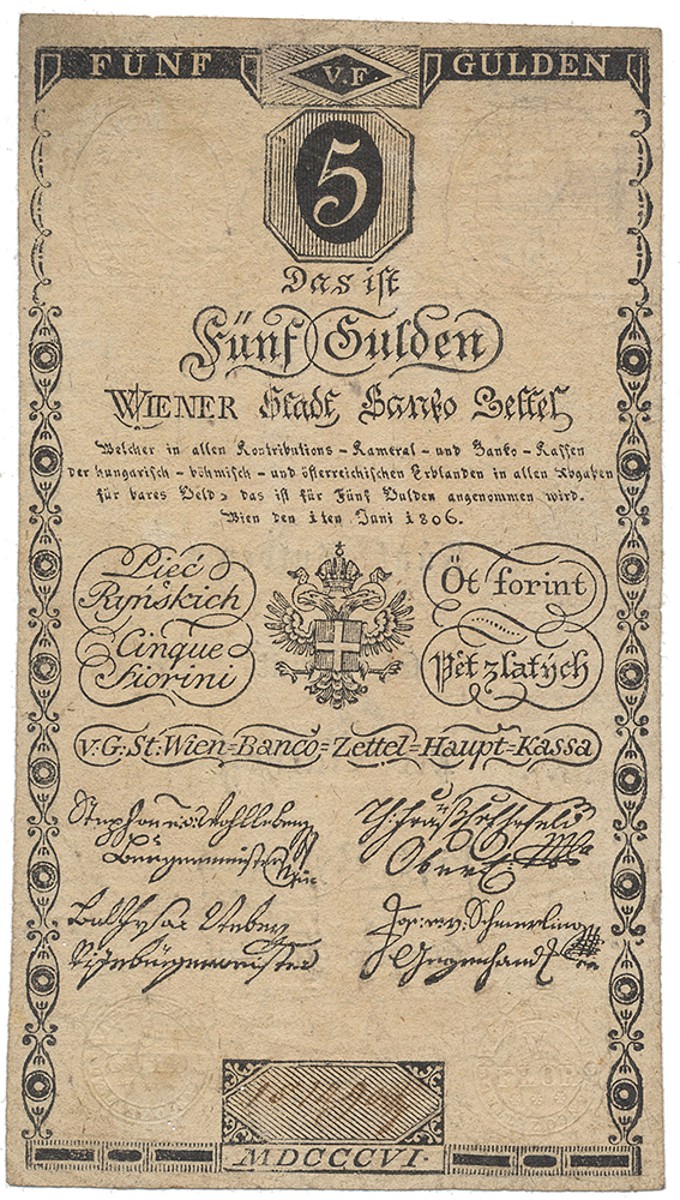 FÜNF V.F. GULDEN
5
Das ist
Fünf Gulden
WIENER Stadt Banko Zettel
Welcher in allen Kontributions-Kameral-und Banko-Kassen
der hungarisch-böhmisch-und österreichischen Erblanden in allen Abgaben
für bares Geld, das ist für Fünf Gulden angenommen wird.
Wien den 1ten Juni 1806.
Pięć
Ryńskich
Cinque
Fiorini
Öt forint
Pět zlatých
V:G:St:Wien=Banco=Zettel=Haupt=Kassa
Stephan Wohlleben
Burgermeister
Ober
Balthasar Weber
Vizebürgermeister
Jos: v. Schmerling
Gegenhandl
MDCCCVI.